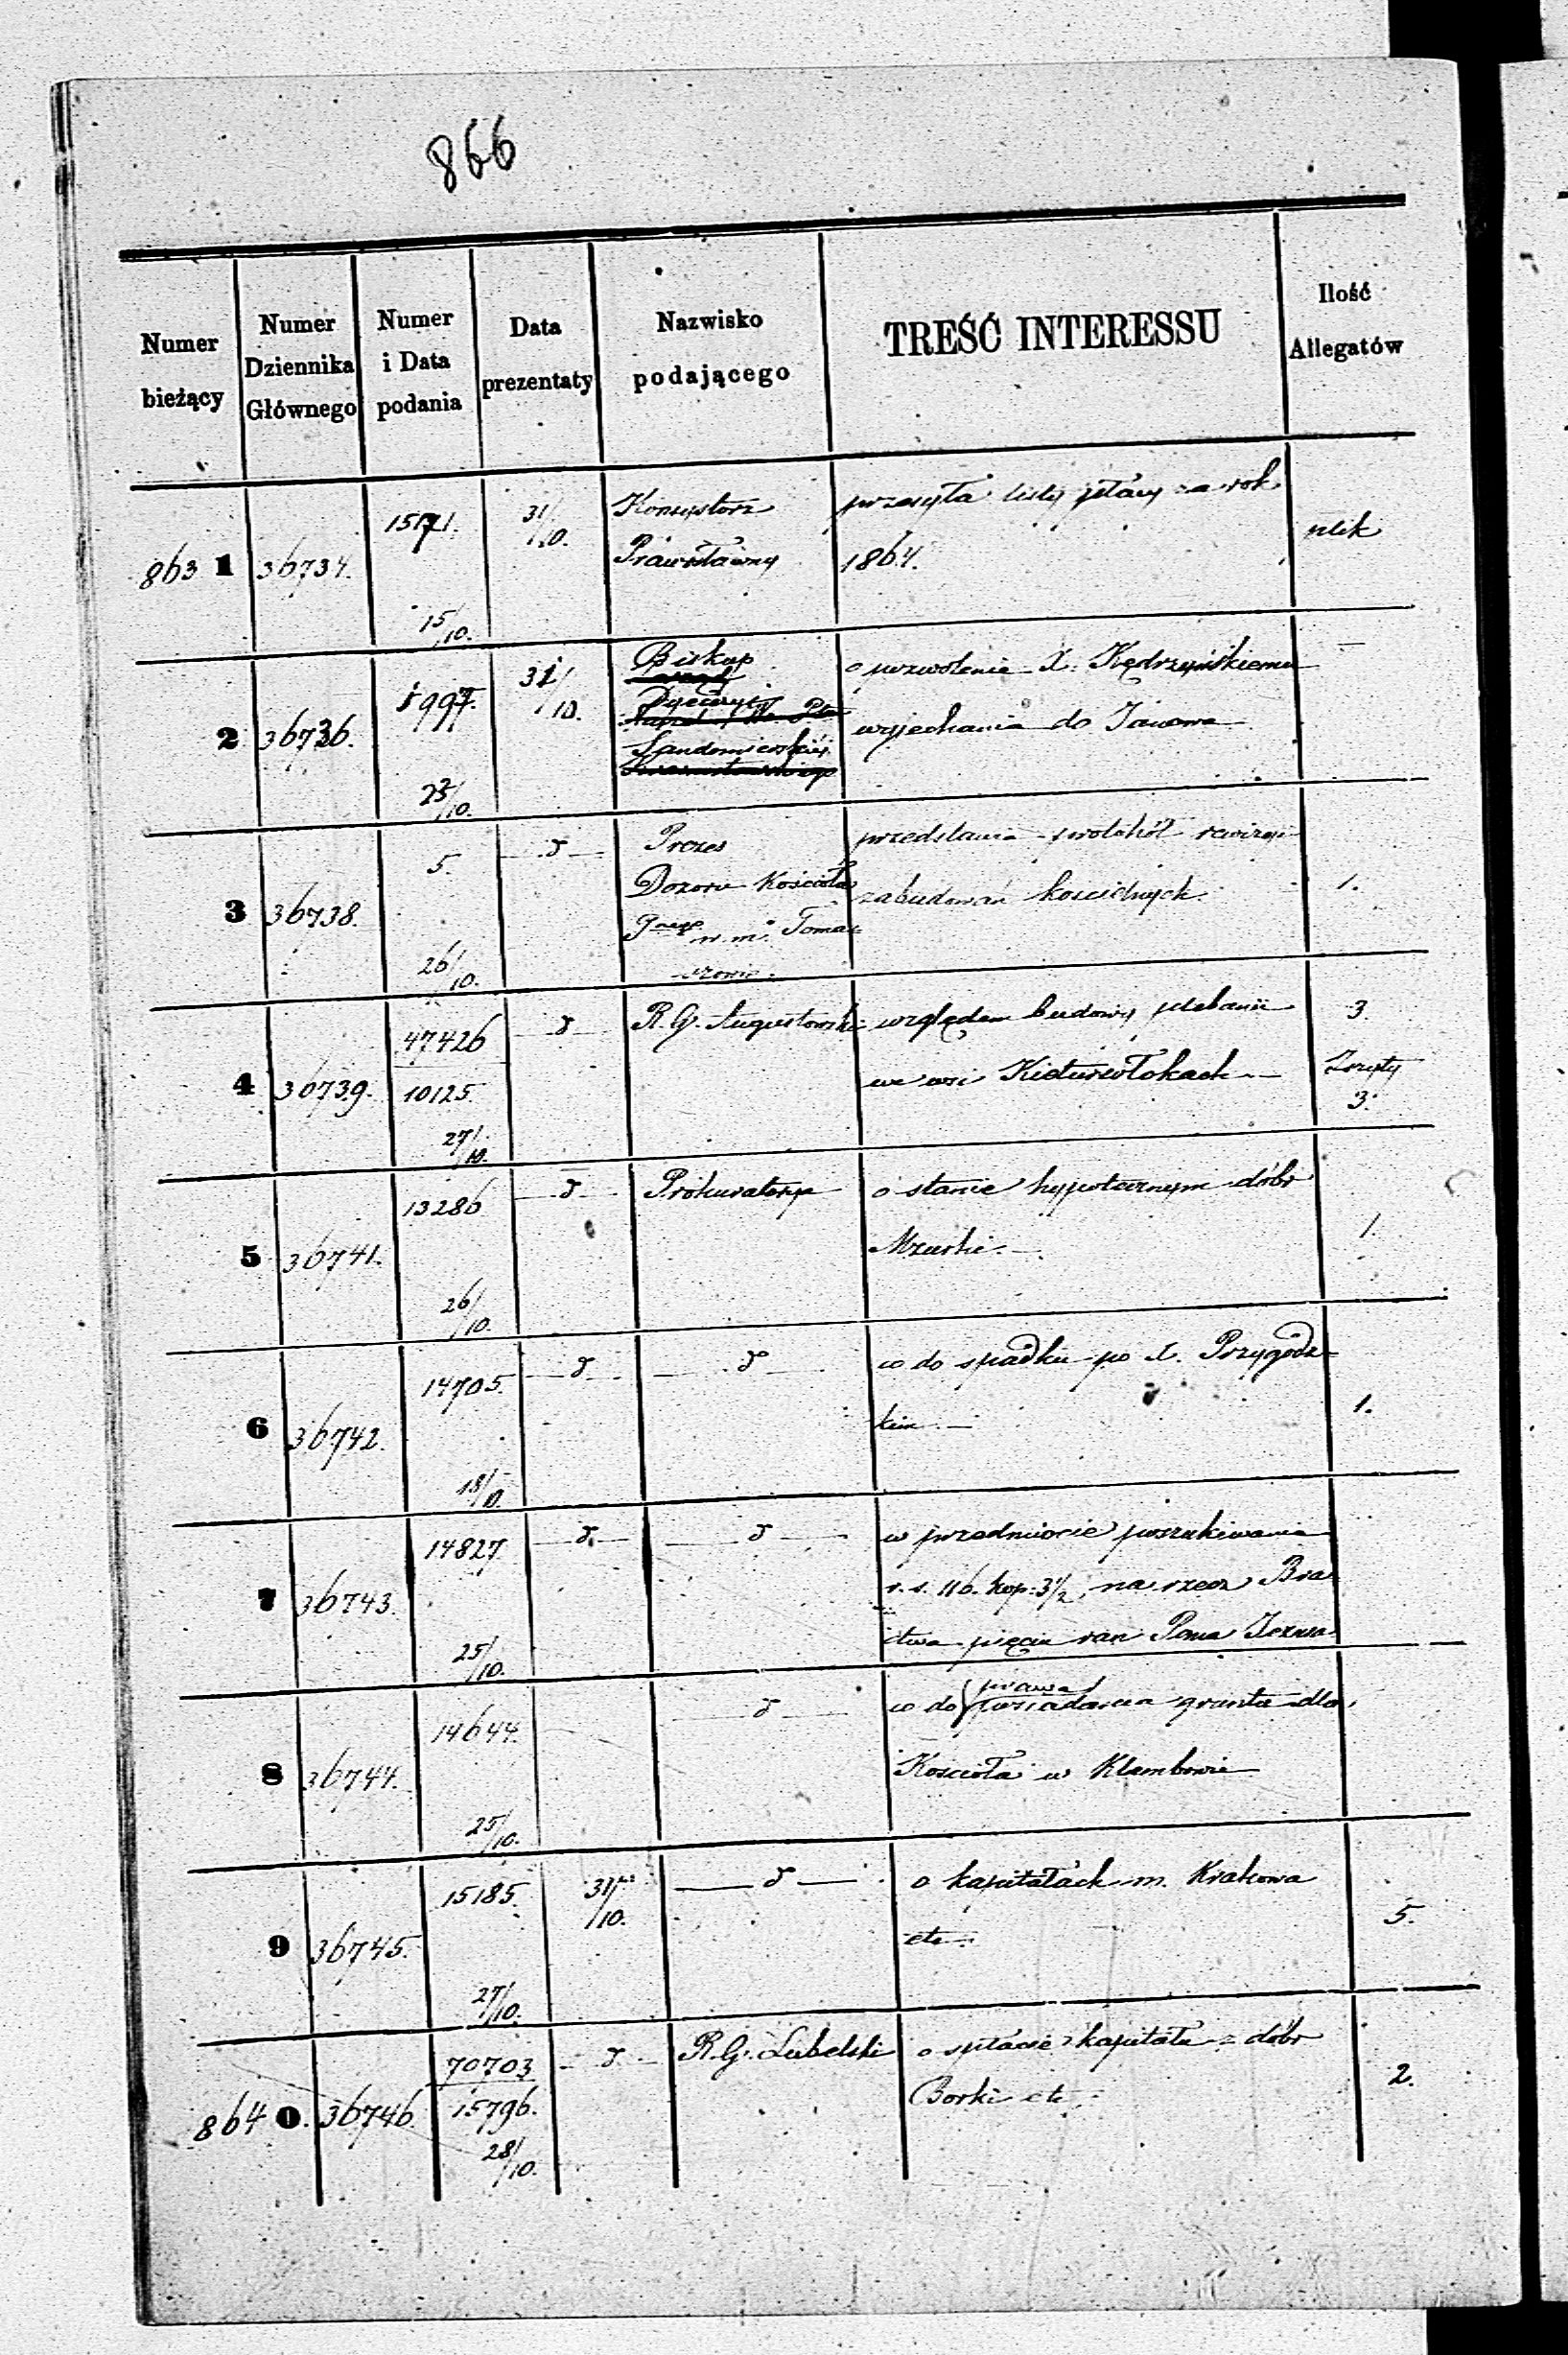 866
Numer bieżący
Numer Dziennika Głównego
Numer i Data podania
Data prezentaty
Nazwisko podającego
TREŚĆ INTERESSU
Ilość Allegatów
863 1 36734. 15171. 15/10. 31/10. Konsystorz przesyła listy płacy za rok plik
Prawosławny 1864.
2 36736. 1997. 23/10. 31/10. Biskup o pozwolenie X. Kędrzyńskiemu —
Dyecezyi wyjechania do
Sandomierskiéj
3 36738. 5. 26/10. d Prezes przedstawia protokół rewizyi 1.
Dozoru Kościoła zabudowań kościelnych.
w m. Toma-
szowie.
4 36739. 47426 10125. 27/10. d R. G. Augustowski względem budowy plebanii 3.
we wsi Kieturwłokach Zeszyty
3.
5 36741. 13286 26/10. d Prokuratorya o stanie hypotecznym dóbr 1.
Mzurki.
6 36742. 14705. 18/10. d d co do spadku po X. Przygodz- 1.
kim
7 36743. 14827. 25/10. d. d w przedmiocie poszukiwania
r. s. 116. kop. 3½, na rzecz Bra-
ctwa pięciu ran Pana Jezusa
8 36744. 14644. 25/10. d co do prawa posiadania gruntu dla
Kościoła w Klembowie
9 36745. 15185. 27/10. 31/10. d o kapitałach m. Krakowa 5.
etc.
864 0. 36746. 70703 15796. 28/10. d R. G. Lubelski o spłacie kapitału z dóbr 2.
Borki etc.